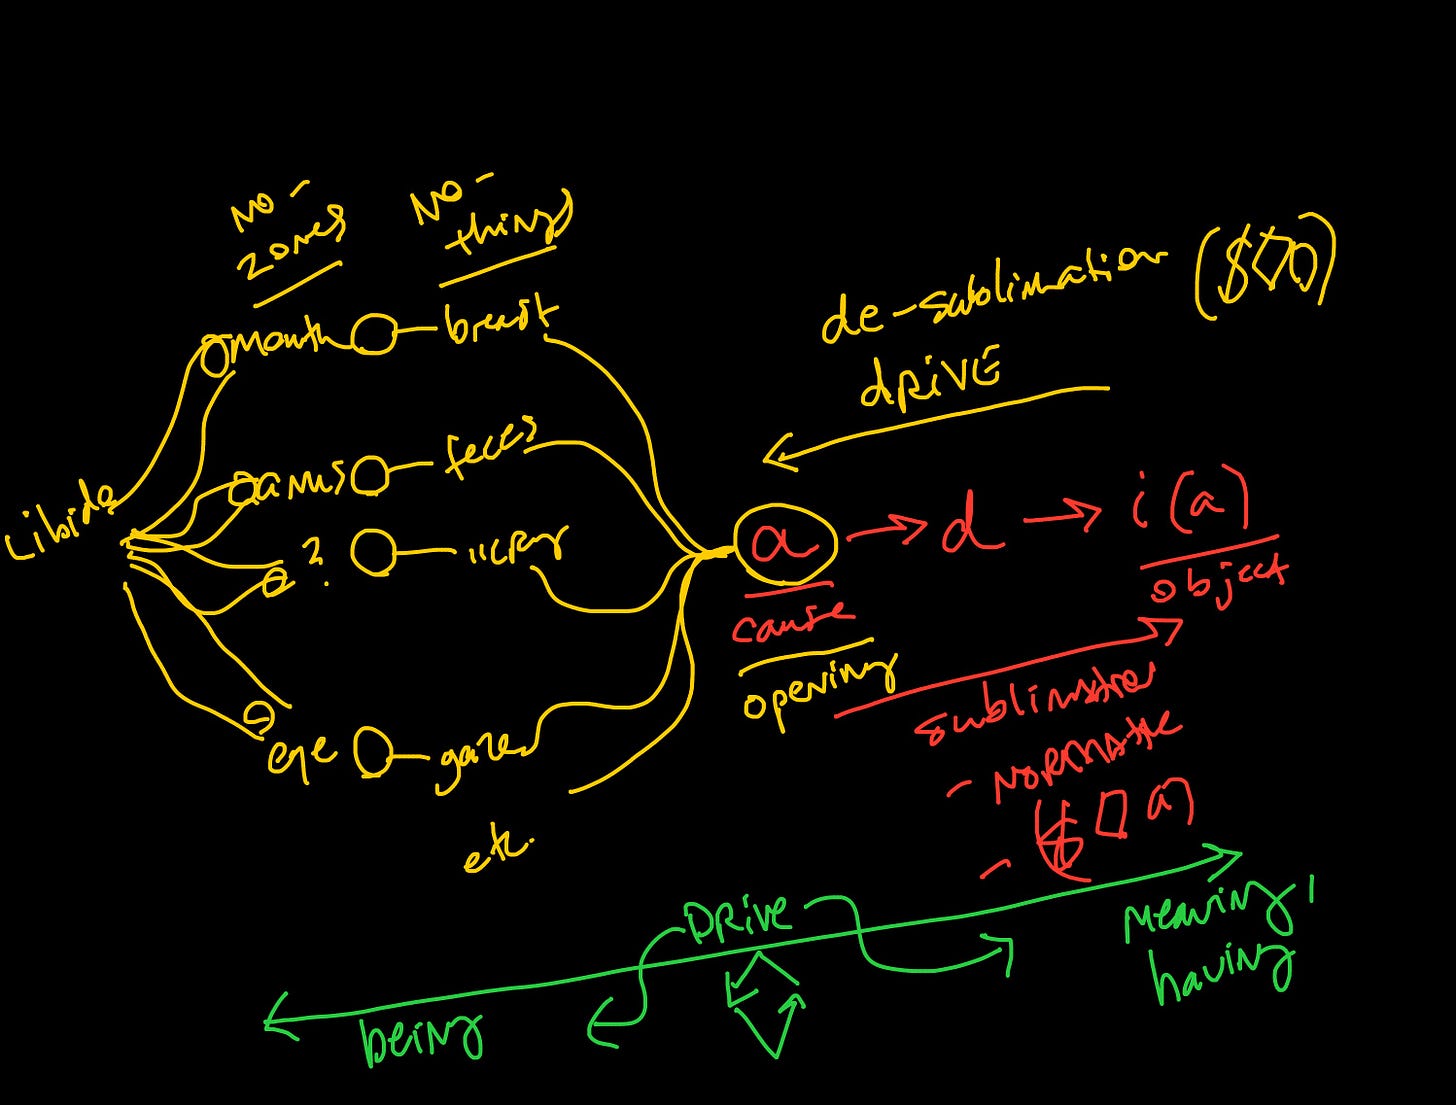 No-
zones
No-
things
mouth
breast
de-sublimation ($◇D)
drive
Libido
anus
feces
?
a
d
i(a)
object
cause
opening
sublimation
- Normative
- ($◇a)
eye
gaze
etc.
Drive
being
Meaning,
having